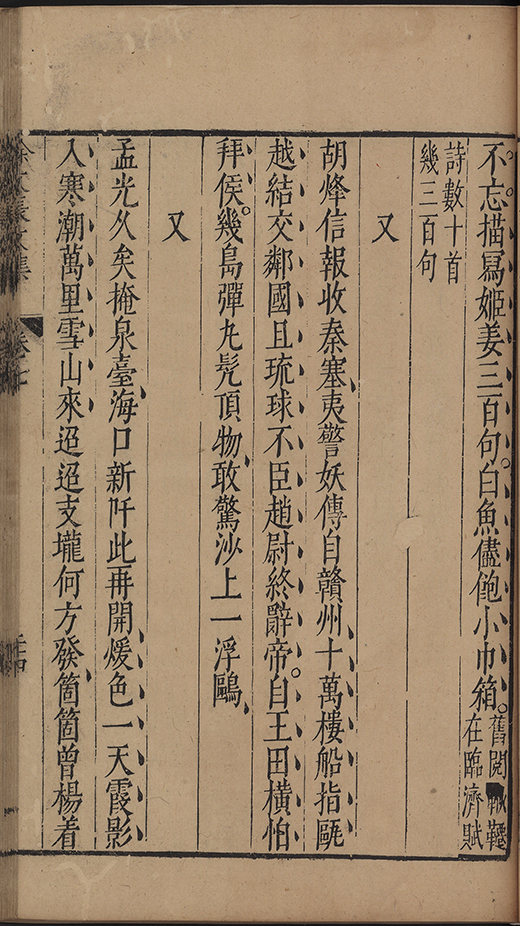 不忘描寫姬姜三百句白魚儘飽小巾箱
舊閱鞦韆
在臨濟賦
詩數十首
幾三百句
又
胡烽信報收秦塞夷警妖傳自贛州十萬樓船指甌
越結交鄰國且琉球不臣趙尉終辭帝自王田橫怕
拜侯幾島彈丸髠頂物敢驚沙上一浮鷗
又
孟光久矣掩泉臺海口新阡此再開煖色一天霞影
入寒潮萬里雪山來迢迢支壠何方發箇箇曾楊着
徐文長文集
卷七